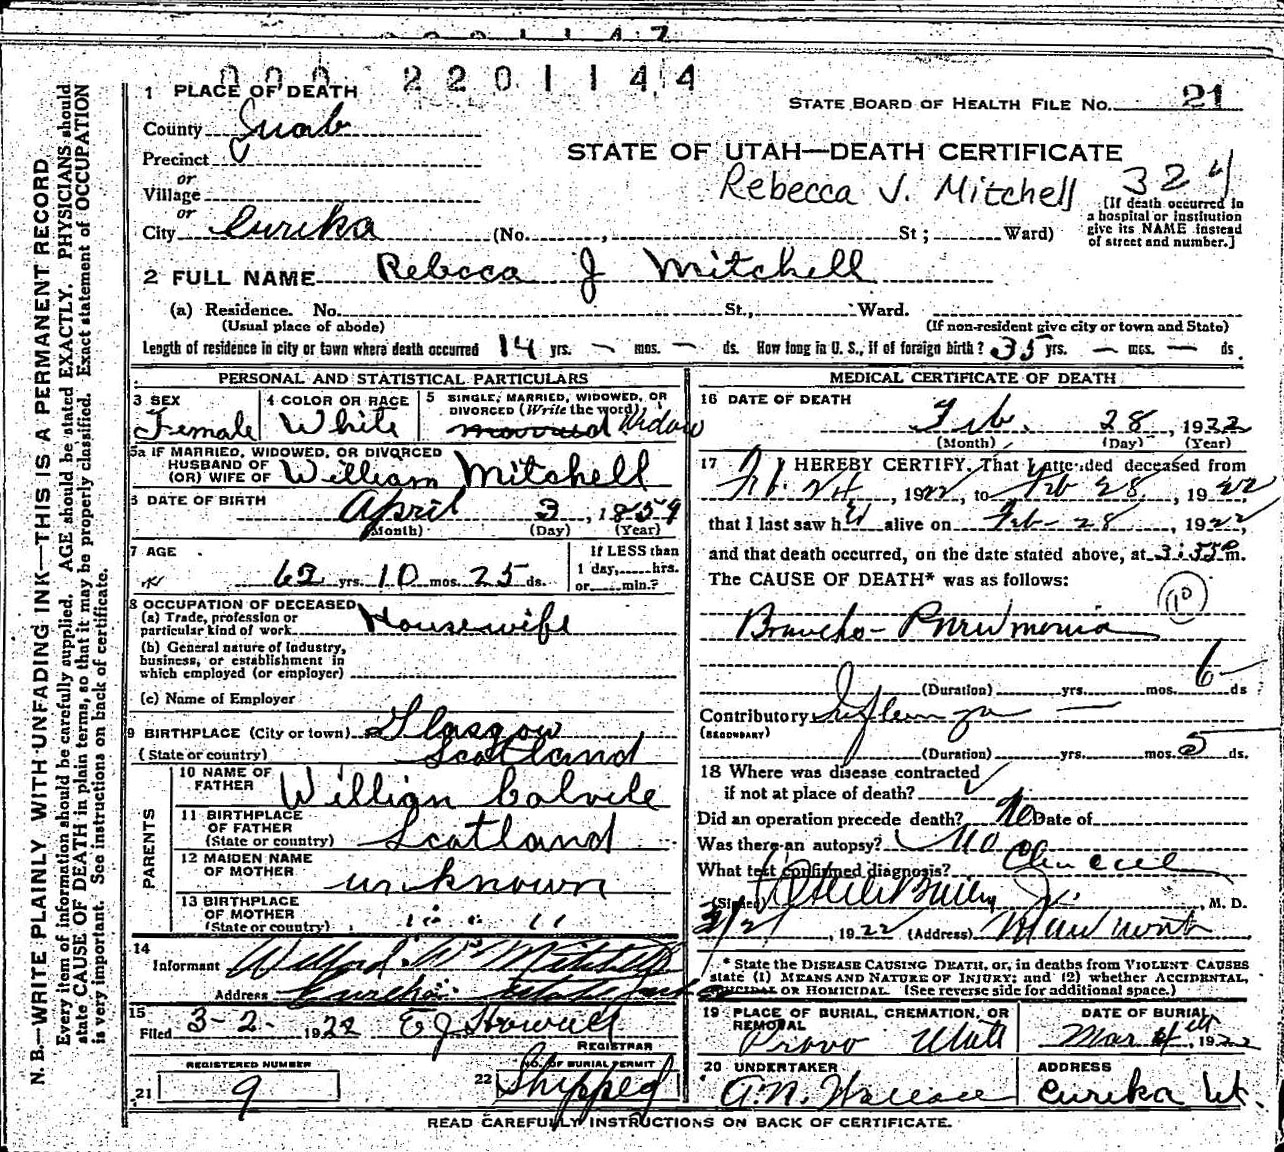 000 2201144
1 PLACE OF DEATH
STATE BOARD OF HEALTH FILE No. 21
County Juab
Precinct
or
Village
or
City Eureka (No. , St; Ward)
STATE OF UTAH—DEATH CERTIFICATE
Rebecca J. Mitchell 324
[If death occurred in
a hospital or institution
give its NAME instead
of street and number.]
2 FULL NAME Rebecca J Mitchell
(a) Residence. No. St., Ward.
(Usual place of abode) (If non-resident give city or town and State)
Length of residence in city or town where death occurred 14 yrs. — mos. — ds. How long in U. S., if of foreign birth? 35 yrs. — mos. — ds.
PERSONAL AND STATISTICAL PARTICULARS
3 SEX Female
4 COLOR OR RACE White
5 SINGLE, MARRIED, WIDOWED, OR
DIVORCED (Write the word)
married Widow
5a IF MARRIED, WIDOWED, OR DIVORCED
HUSBAND OF
(OR) WIFE OF William Mitchell
6 DATE OF BIRTH April 3, 1859
(Month) (Day) (Year)
7 AGE 62 yrs. 10 mos. 25 ds.
If LESS than
1 day, hrs.
or min.?
8 OCCUPATION OF DECEASED
(a) Trade, profession or
particular kind of work Housewife
(b) General nature of Industry,
business, or establishment in
which employed (or employer)
(c) Name of Employer
9 BIRTHPLACE (City or town) Glasgow
(State or country) Scotland
PARENTS
10 NAME OF
FATHER William
11 BIRTHPLACE
OF FATHER
(State or country) Scotland
12 MAIDEN NAME
OF MOTHER unknown
13 BIRTHPLACE
OF MOTHER
(State or country) " "
14
Informant Mitchell
Address Eureka Utah
15
Filed 3-2- 1922 E J Howell
REGISTRAR
21 REGISTERED NUMBER
9
22 NO. OF BURIAL PERMIT
Shipped
MEDICAL CERTIFICATE OF DEATH
16 DATE OF DEATH
Feb. 28, 1922
(Month) (Day) (Year)
17 I HEREBY CERTIFY, That I attended deceased from
Feb. 24, 1922, to Feb 28, 1922
that I last saw her alive on Feb-28, 1922
and that death occurred, on the date stated above, at 3:55 P m.
The CAUSE OF DEATH* was as follows:
Broncho-Pneumonia
(Duration) yrs. mos. 6 ds
Contributory Influenza
(SECONDARY)
(Duration) yrs. mos. 5 ds.
18 Where was disease contracted
if not at place of death?
Did an operation precede death? No Date of
Was there an autopsy? No
What test confirmed diagnosis? Clinical
(Signed) Steele Bailey Jr., M. D.
3/2, 1922 (Address) Mammoth
* State the DISEASE CAUSING DEATH, or, in deaths from VIOLENT CAUSES
state (1) MEANS AND NATURE OF INJURY; and (2) whether ACCIDENTAL,
SUICIDAL OR HOMICIDAL. (See reverse side for additional space.)
19 PLACE OF BURIAL, CREMATION, OR
REMOVAL
Provo Utah
DATE OF BURIAL
Mar 4th, 1922
20 UNDERTAKER
A. N. Wallace
ADDRESS
Eureka Ut.
READ CAREFULLY INSTRUCTIONS ON BACK OF CERTIFICATE.
N. B.—WRITE PLAINLY WITH UNFADING INK—THIS IS A PERMANENT RECORD
Every item of information should be carefully supplied. AGE should be stated EXACTLY. PHYSICIANS should
state CAUSE OF DEATH in plain terms, so that it may be properly classified. Exact statement of OCCUPATION
is very important. See instructions on back of certificate.